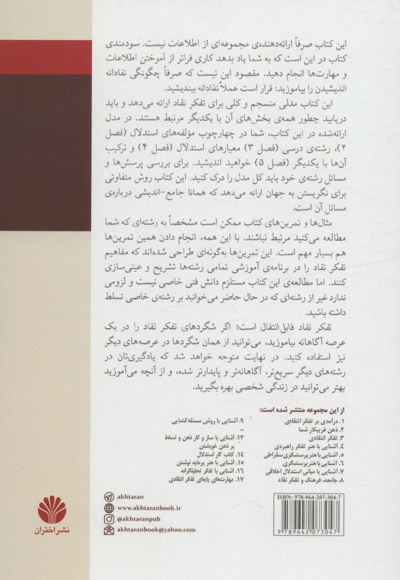 این کتاب صرفاً ارائه‌دهنده‌ی مجموعه‌ای از اطلاعات نیست. سودمندی
کتاب در این است که به شما یاد بدهد کاری فراتر از آموختن اطلاعات
و مهارت‌ها انجام دهید. مقصود این نیست که صرفاً چگونگی نقادانه
اندیشیدن را بیاموزید: قرار است عملاً نقادانه بیندیشید.
این کتاب مدلی منسجم و کلی برای تفکر نقاد ارائه می‌دهد و باید
دریابید چطور همه‌ی بخش‌های آن با یکدیگر مرتبط هستند. در مدل
ارائه‌شده در این کتاب، شما در چهارچوب مؤلفه‌های استدلال (فصل
۲)، رشته‌ی درسی (فصل ۳) معیارهای استدلال (فصل ۴) و ترکیب
آن‌ها با یکدیگر (فصل ۵) خواهید اندیشید. برای بررسی پرسش‌ها و
مسائل رشته‌ی خود باید کل مدل را درک کنید. این کتاب روش متفاوتی
برای نگریستن به جهان ارائه می‌دهد که همانا جامع-اندیشی درباره‌ی
مسائل آن است.
مثال‌ها و تمرین‌های کتاب ممکن است مشخصاً به رشته‌ای که شما
مطالعه می‌کنید مرتبط نباشند. با این همه، انجام دادن همین تمرین‌ها
هم بسیار مهم است. این تمرین‌ها به‌گونه‌ای طراحی شده‌اند که مفاهیم
تفکر نقاد را در برنامه‌ی آموزشی تمامی رشته‌ها تشریح و عینی‌سازی
کنند. اما مطالعه‌ی این کتاب مستلزم دانش فنی خاصی نیست و لزومی
ندارد غیر از رشته‌ای که در حال حاضر می‌خوانید بر رشته‌ی خاصی تسلط
داشته باشید.
تفکر نقاد قابل‌انتقال است؛ اگر شگردهای تفکر نقاد را در یک
عرصه آگاهانه بیاموزید، می‌توانید از همان شگردها در عرصه‌های دیگر
نیز استفاده کنید. در نهایت متوجه خواهد شد که یادگیری‌تان در
رشته‌های دیگر سریع‌تر، آگاهانه‌تر و پایدارتر شده، و از آنچه می‌آموزید
بهتر می‌توانید در زندگی شخصی بهره بگیرید.
از این مجموعه منتشر شده است:
۱. درآمدی بر تفکر انتقادی
۲. ذهن فریبکار شما
۳. تفکر انتقادی
۴. آشنایی با هنر تفکر راهبردی
۵. آشنایی با هنر پرسشگری سقراطی
۶. آشنایی با هنر پرسشگری
۷. آشنایی با مبانی استدلال اخلاقی
۸. جامعه، فرهنگ و تفکر نقاد
۹. آشنایی با روش مسئله‌گشایی
آشنایی با ساز و کار ذهن و تسلط
بر ذهن خویشتن
۱۴. کتاب کار استدلال
۱۵. آشنایی با هنر برمایه نوشتن
۱۶. آشنایی با تفکر تحلیلگرانه
۱۷. مهارت‌های پایه‌ای تفکر انتقادی
نشر اختران
akhtaran
www.akhtaranbook.ir
@akhtaranpub
akhtaranbook@yahoo.com
ISBN: 978-964-207-304-7
9789642073047